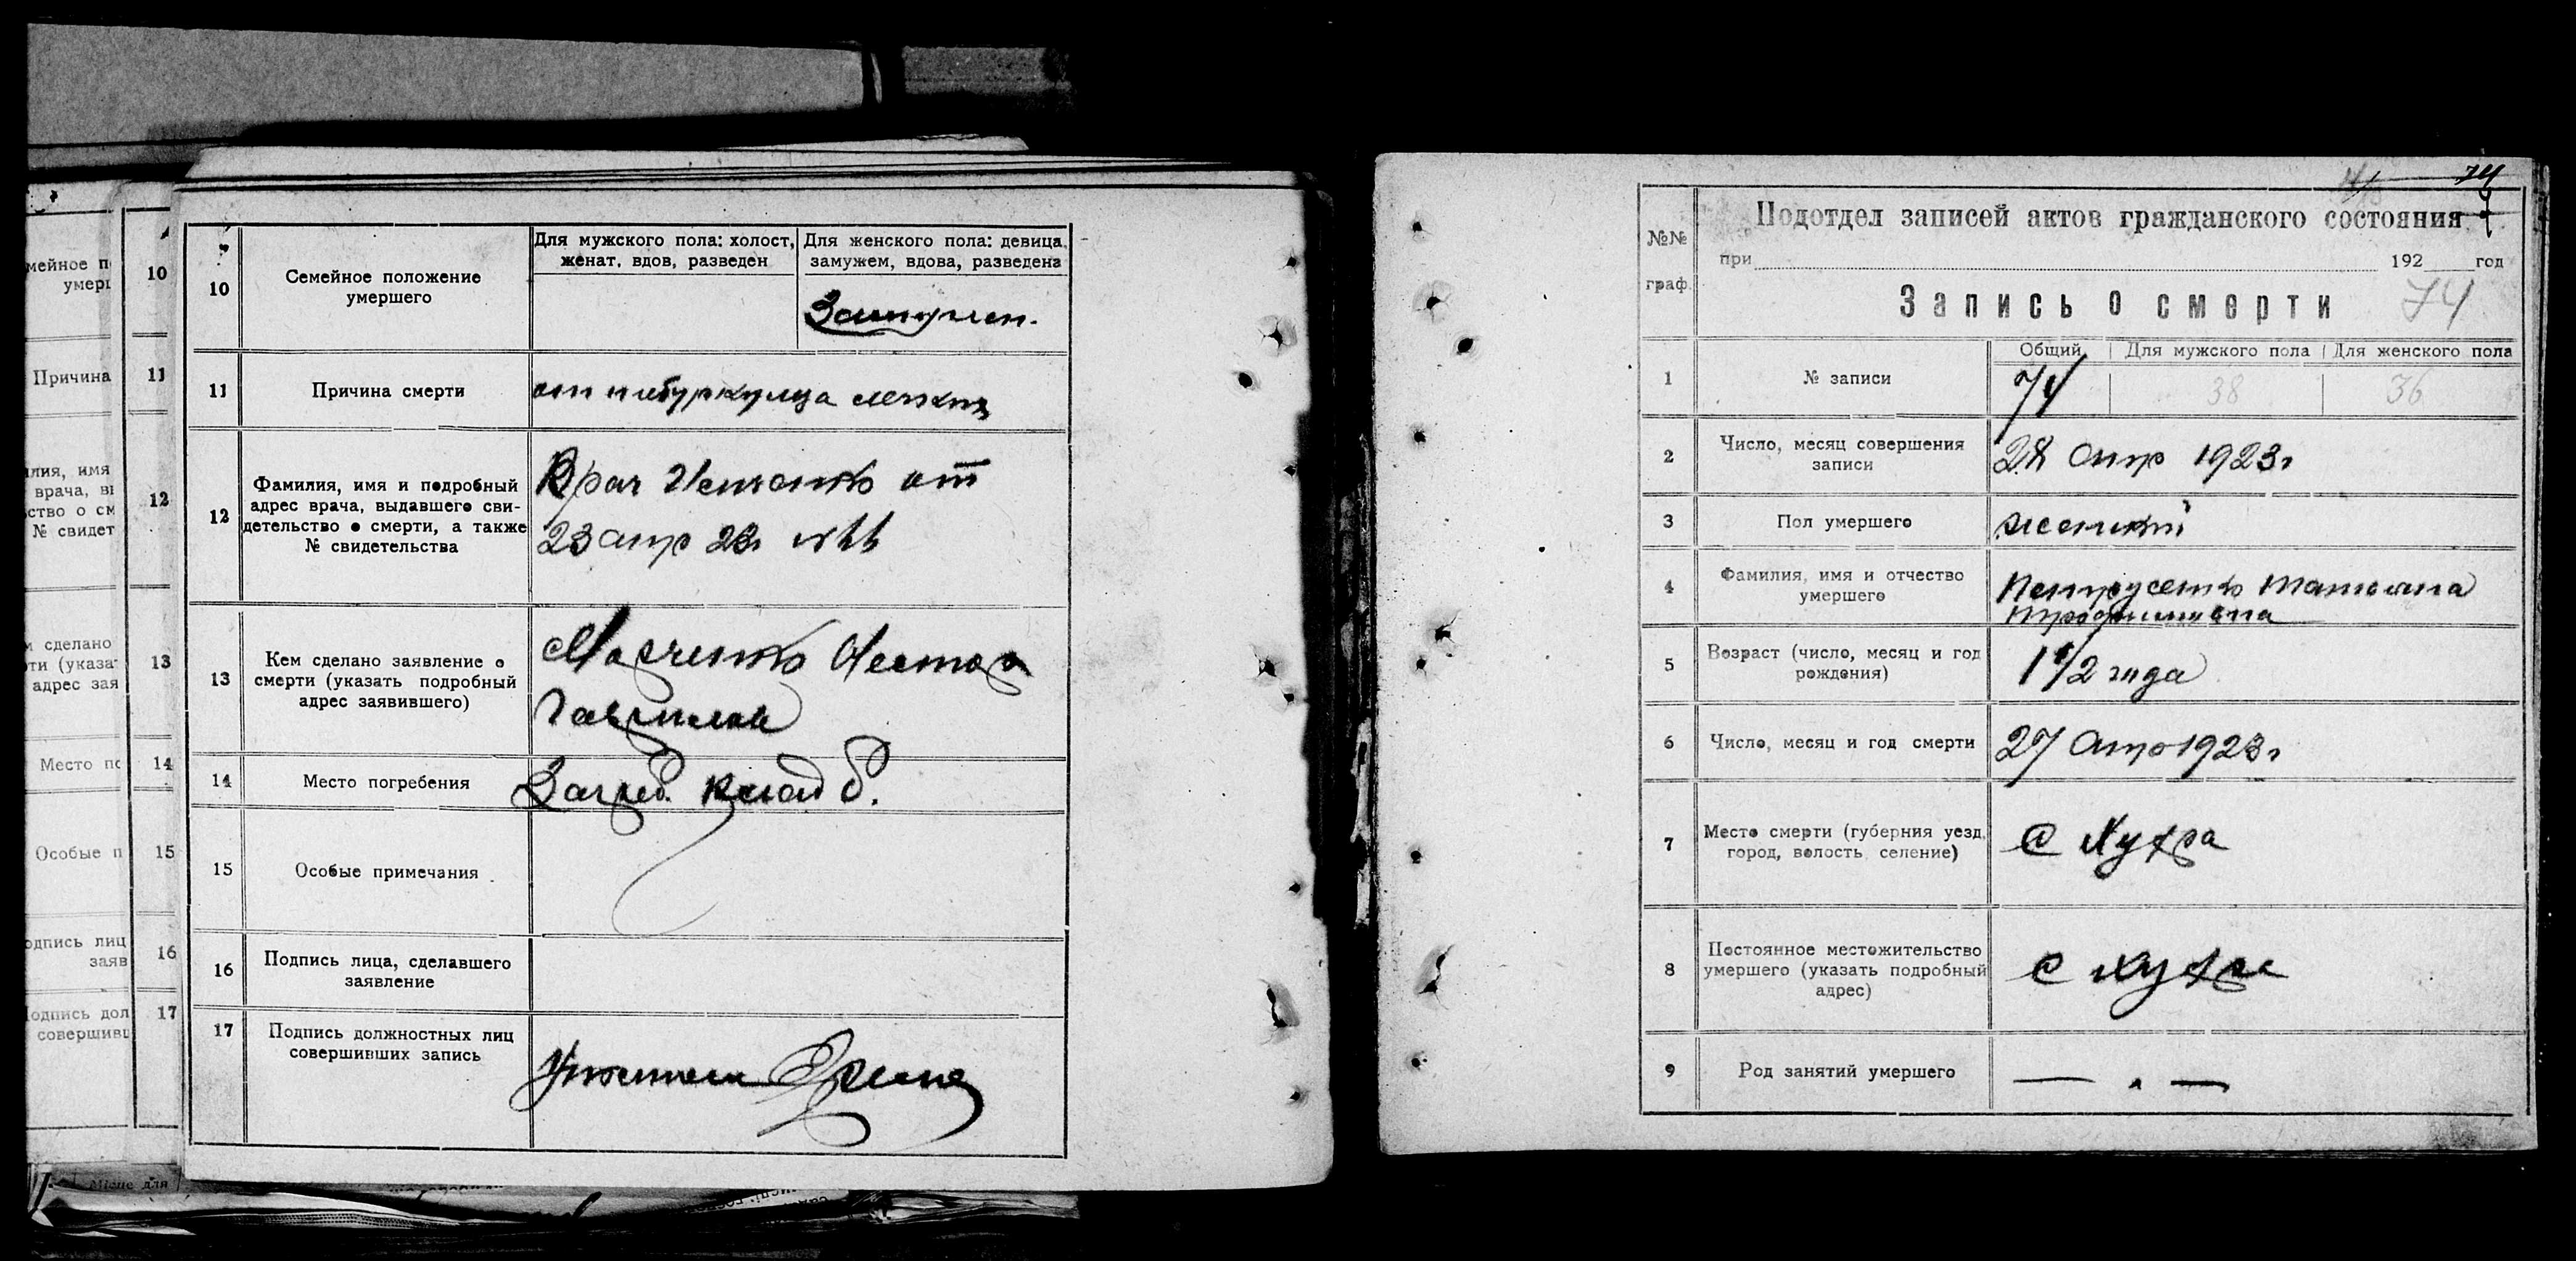 мейное п
умерш
10
Причина
11
лия, имя
врача, вы
ство о см
№ свидет
12
м сделано
ти (указа
адрес зая
13
Место по
14
Особые п
15
одпись лиц
заяв
16
одпись дол
совершивш
17
Місце для
10
Семейное положение
умершего
Для мужского пола: холост,
женат, вдов, разведен
Для женского пола: девица,
замужем, вдова, разведена
Замужем.
11
Причина смерти
от тибуркулца легких
12
Фамилия, имя и подробный
адрес врача, выдавшего сви-
детельство о смерти, а также
№ свидетельства
Врач от
23 апр 23г №
13
Кем сделано заявление о
смерти (указать подробный
адрес заявившего)
Марченко Нестор
Гаврилов
14
Место погребения
Загред. кладб.
15
Особые примечания
16
Подпись лица, сделавшего
заявление
17
Подпись должностных лиц
совершивших запись
74
№№
граф.
Подотдел записей актов гражданского состояния
при 192 год
Запись о смерти
74
1
№ записи
Общий
Для мужского пола
Для женского пола
74
38
36
2
Число, месяц совершения
записи
28 апр 1923г
3
Пол умершего
женский
4
Фамилия, имя и отчество
умершего
Петрусенко Татьяна
Трофимовна
5
Возраст (число, месяц и год
рождения)
1 1/2 года
6
Число, месяц и год смерти
27 апр 1923г
7
Место смерти (губерния уезд,
город, волость, селение)
с Хухра
8
Постоянное местожительство
умершего (указать подробный
адрес)
с Хухра
9
Род занятий умершего
— " —